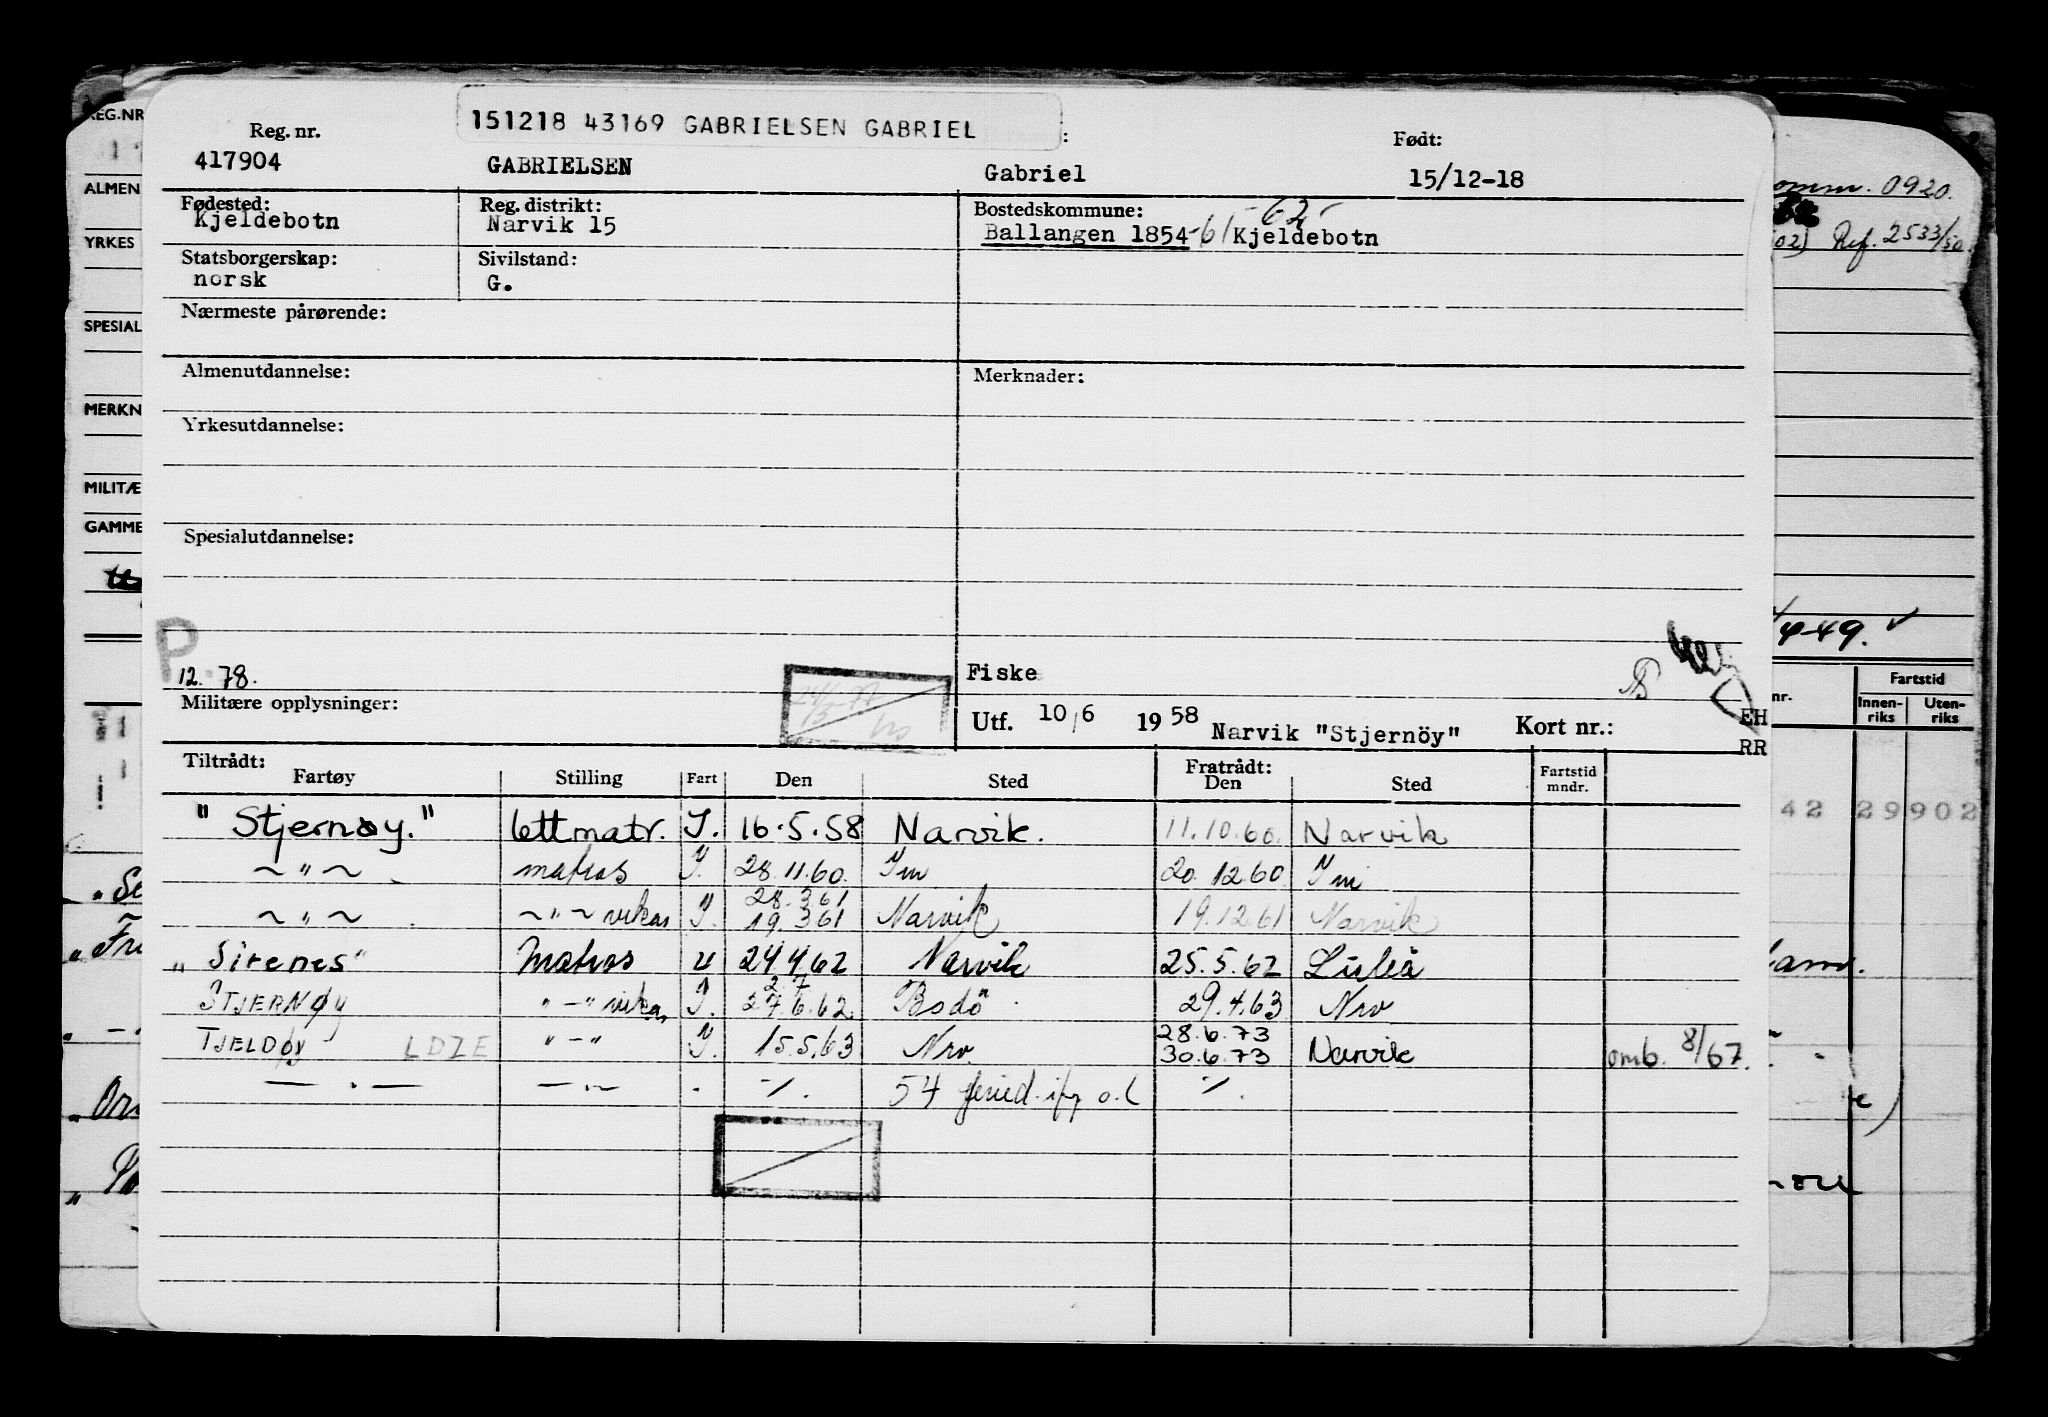 151218 43169 GABRIELSEN GABRIEL
Reg. nr. : Født:
417904 GABRIELSEN Gabriel 15/12-18
Fødested: Reg. distrikt: Bostedskommune: -62-
Kjeldebotn Narvik 15 Ballangen 1854 -61 Kjeldebotn
Statsborgerskap: Sivilstand:
norsk G.
Nærmeste pårørende:
Almenutdannelse: Merknader:
Yrkesutdannelse:
Spesialutdannelse:
P.
12. 78. Fiske
Militære opplysninger: Utf. 10/6 1958 Narvik "Stjernöy" Kort nr.: EH
RR
Tiltrådt: Fratrådt:
Fartøy Stilling Fart Den Sted Den Sted Fartstid mndr.
"Stjernøy." lettmatr. I. 16.5.58 Narvik. 11.10.60. Narvik
~ " ~ matros I. 28.11.60. 20.12.60
28.3.61
~ " ~ ~ " ~ vikar I. 19.3.61 Narvik 19.12.61 Narvik
"Sirenes" Matros u 24.4.62 Narvik 25.5.62 Luleå
2.7
STJERNØY " - " vikar I. 27.6.62. Bodö 29.4.63 Nrv
28.6.73
TJELDØY LDZE " - " I. 15.5.63 Nrv 30.6.73 Narvik omb. 8/67.
— " — — " — . ٪. 54 ٪.
REG.NR
ALMEN
YRKES
SPESIAL
MERKN
MILITÆ
GAMME
omm. 0920.
02) Ref. 2533/50
4-49. ✓
nr. Fartstid
Innen-riks Uten-riks
42 29902